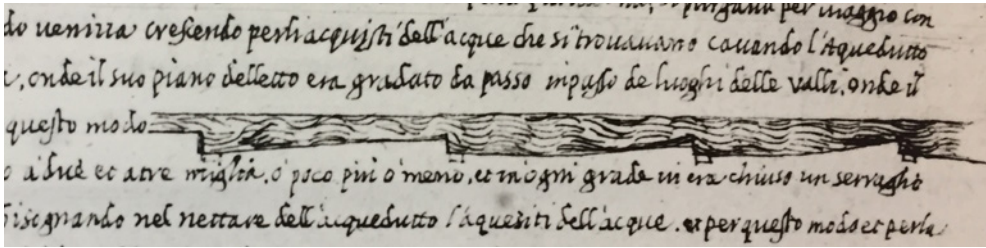 per viaggio con
do veniva crescendo perli acquisti dell'acque che si trovavano cavando l'Aquedutto
onde il suo piano delletto era gradato da passo inpasso de luoghi delle valli, onde il
questo modo
a due et a tre miglia, o poco piu o meno, et in ogni grade vi era chiuso un serraglio
bisognando nel nettare dell'acquedutto l'aquesiti dell'acque, et per questo modo et perla